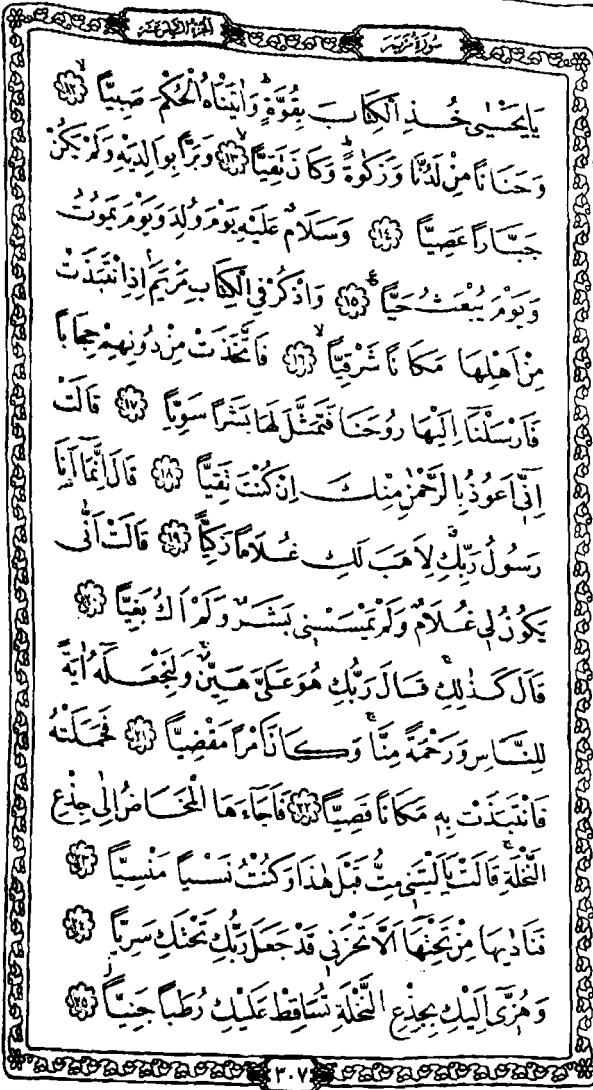 سُورَةُ مَرْيَمَ
الجزء السادس عشر
يَا يَحْيٰى خُذِ الْكِتَابَ بِقُوَّةٍ وَاٰتَيْنَاهُ الْحُكْمَ صَبِيًّا ﴿١٢﴾
وَحَنَانًا مِنْ لَدُنَّا وَزَكٰوةً وَكَانَ تَقِيًّا ﴿١٣﴾ وَبَرًّا بِوَالِدَيْهِ وَلَمْ يَكُنْ
جَبَّارًا عَصِيًّا ﴿١٤﴾ وَسَلَامٌ عَلَيْهِ يَوْمَ وُلِدَ وَيَوْمَ يَمُوتُ
وَيَوْمَ يُبْعَثُ حَيًّا ﴿١٥﴾ وَاذْكُرْ فِي الْكِتَابِ مَرْيَمَ اِذِ انْتَبَذَتْ
مِنْ اَهْلِهَا مَكَانًا شَرْقِيًّا ﴿١٦﴾ فَاتَّخَذَتْ مِنْ دُونِهِمْ حِجَابًا
فَاَرْسَلْنَا اِلَيْهَا رُوحَنَا فَتَمَثَّلَ لَهَا بَشَرًا سَوِيًّا ﴿١٧﴾ قَالَتْ
اِنّٖي اَعُوذُ بِالرَّحْمٰنِ مِنْكَ اِنْ كُنْتَ تَقِيًّا ﴿١٨﴾ قَالَ اِنَّمَٓا اَنَا
رَسُولُ رَبِّكِ لِاَهَبَ لَكِ غُلَامًا زَكِيًّا ﴿١٩﴾ قَالَتْ اَنّٰى
يَكُونُ لٖي غُلَامٌ وَلَمْ يَمْسَسْنٖي بَشَرٌ وَلَمْ اَكُ بَغِيًّا ﴿٢٠﴾
قَالَ كَذٰلِكِ قَالَ رَبُّكِ هُوَ عَلَيَّ هَيِّنٌ وَلِنَجْعَلَهُٓ اٰيَةً
لِلنَّاسِ وَرَحْمَةً مِنَّا وَكَانَ اَمْرًا مَقْضِيًّا ﴿٢١﴾ فَحَمَلَتْهُ
فَانْتَبَذَتْ بِهٖ مَكَانًا قَصِيًّا ﴿٢٢﴾ فَاَجَٓاءَهَا الْمَخَاضُ اِلٰى جِذْعِ
النَّخْلَةِ قَالَتْ يَا لَيْتَنٖي مِتُّ قَبْلَ هٰذَا وَكُنْتُ نَسْيًا مَنْسِيًّا ﴿٢٣﴾
فَنَادٰيهَا مِنْ تَحْتِهَٓا اَلَّا تَحْزَنٖي قَدْ جَعَلَ رَبُّكِ تَحْتَكِ سَرِيًّا ﴿٢٤﴾
وَهُزّٖٓي اِلَيْكِ بِجِذْعِ النَّخْلَةِ تُسَاقِطْ عَلَيْكِ رُطَبًا جَنِيًّا ﴿٢٥﴾
٣٠٧